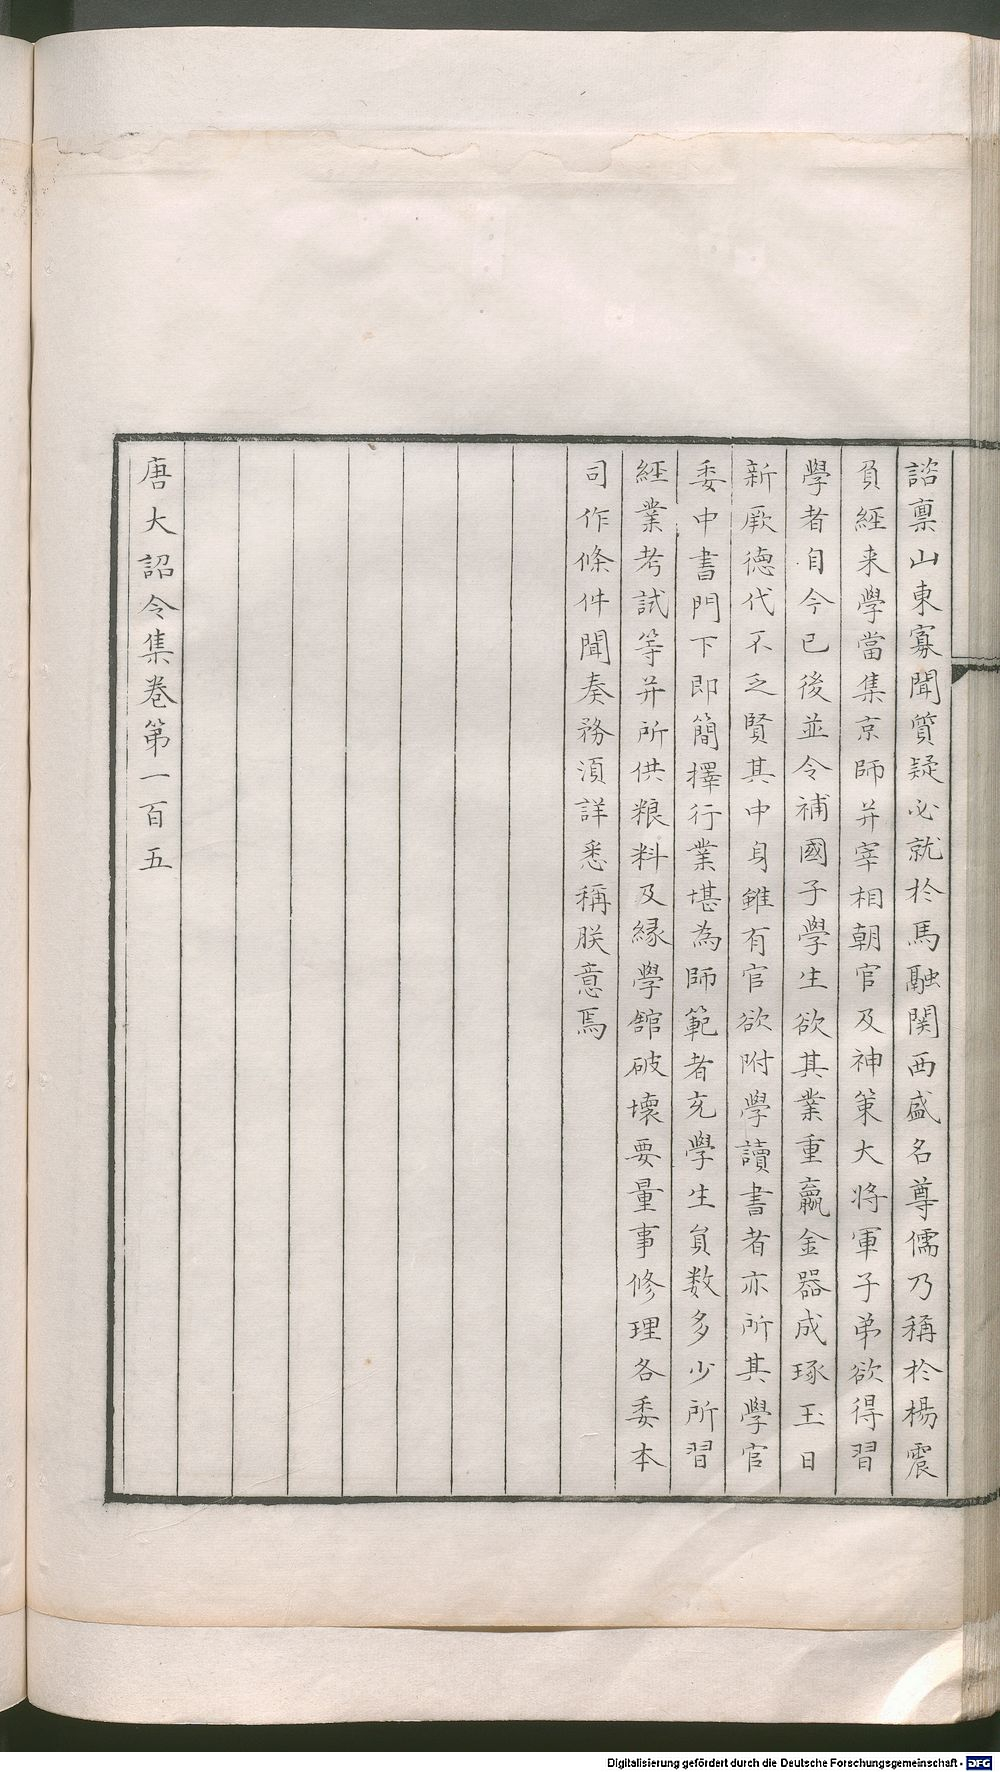 諮禀山東寡聞質疑必就於馬融関西盛名尊儒乃稱於楊震
負經来學當集京師并宰相朝官及神策大将軍子弟欲得習
學者自今已後並令補國子學生欲其業重籯金器成琢玉日
新厥德代不乏賢其中身雖有官欲附學讀書者亦所其學官
委中書門下即簡擇行業堪為師範者充學生員数多少所習
經業考試等并所供粮料及緣學館破壞要量事修理各委本
司作條件聞奏務湏詳悉稱朕意焉
唐大詔令集卷第一百五
Digitalisierung gefördert durch die Deutsche Forschungsgemeinschaft - DFG